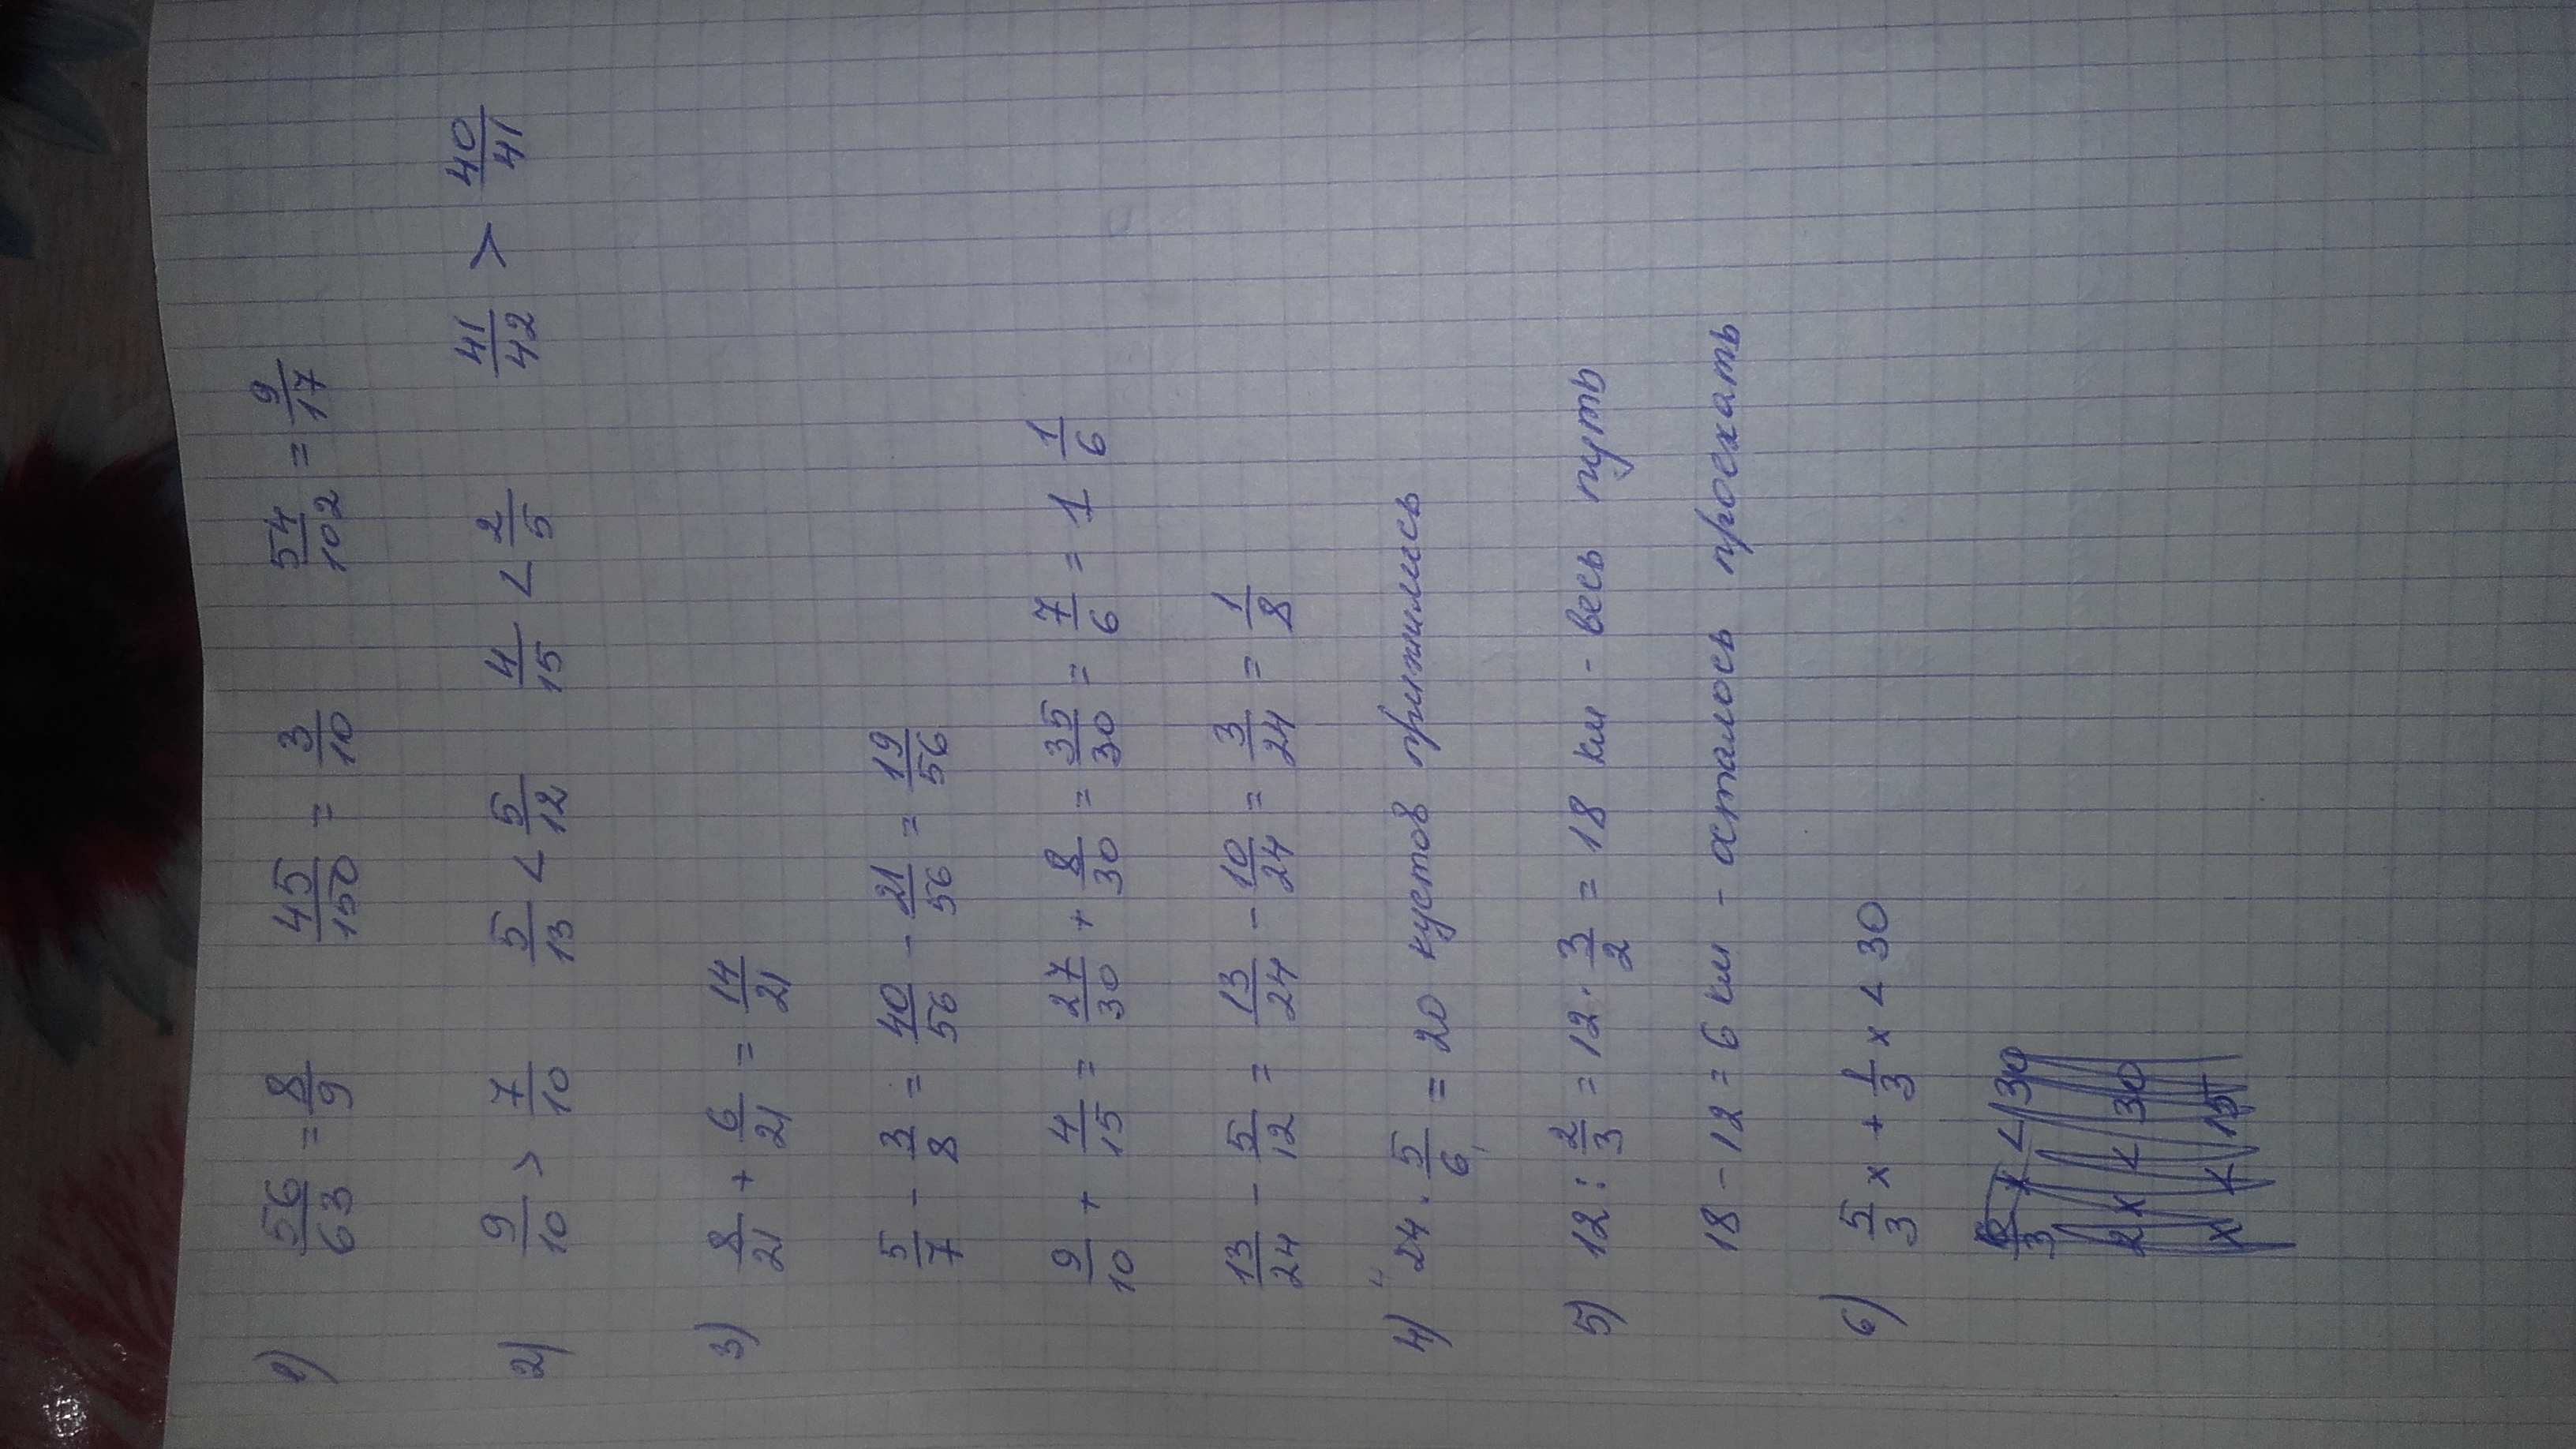 1) 56/63 = 8/9 45/150 = 3/10 54/102 = 9/17
2) 9/10 > 7/10 5/13 < 5/12 4/15 < 2/5 41/42 > 40/41
3) 8/21 + 6/21 = 14/21
5/7 - 3/8 = 40/56 - 21/56 = 19/56
9/10 + 4/15 = 27/30 + 8/30 = 35/30 = 7/6 = 1 1/6
13/24 - 5/12 = 13/24 - 10/24 = 3/24 = 1/8
4) 24 · 5/6 = 20 кустов прижились
5) 12 : 2/3 = 12 · 3/2 = 18 км - весь путь
18 - 12 = 6 км - осталось проехать
6) 5/3 x + 1/3 x < 30